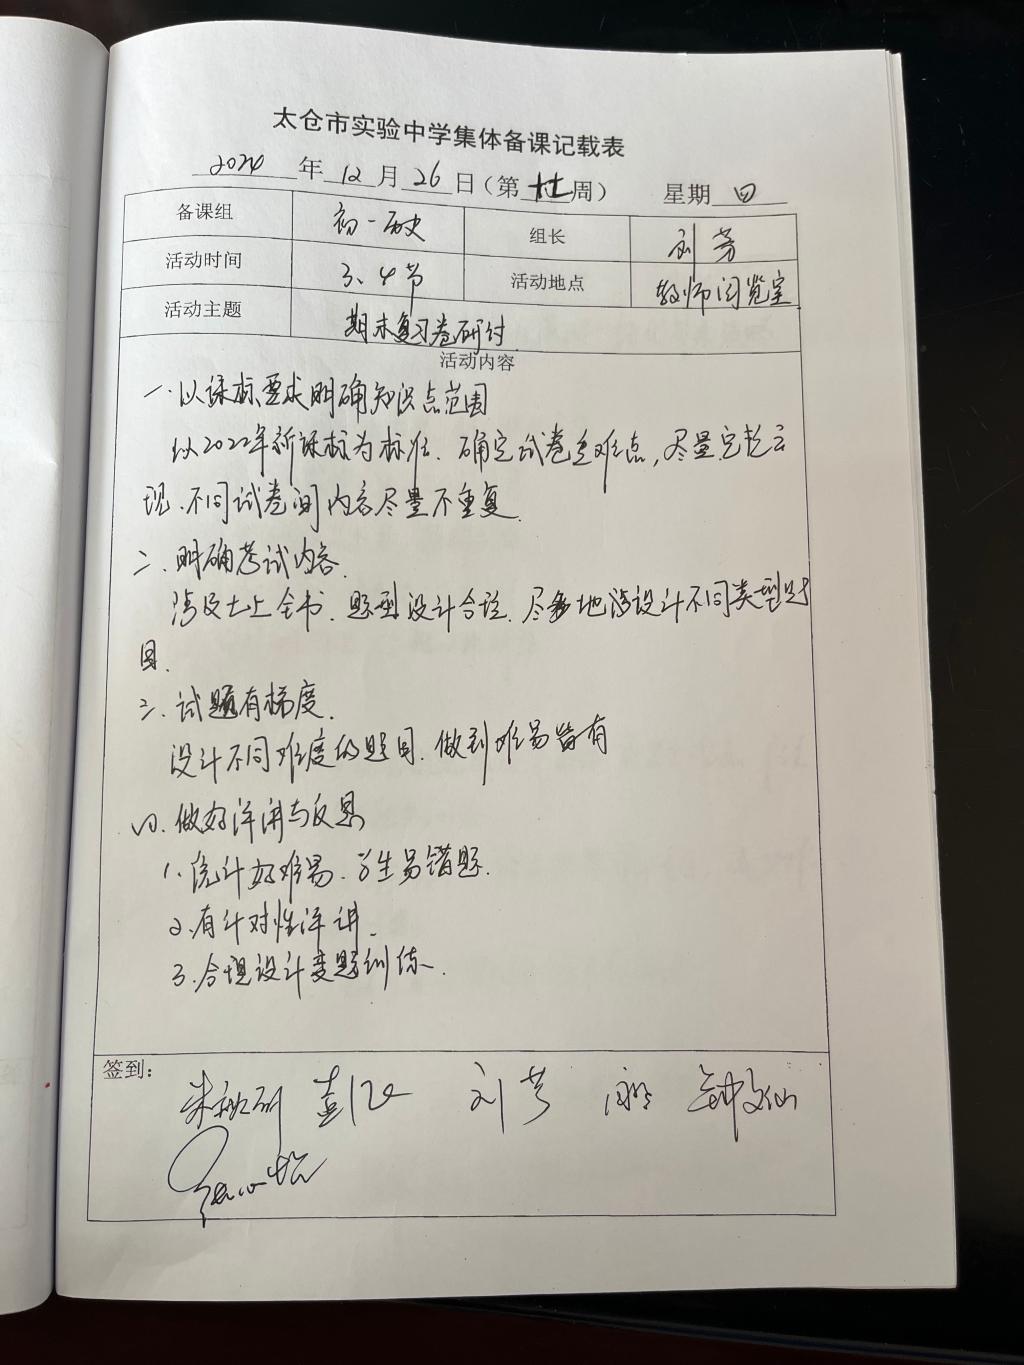 太仓市实验中学集体备课记载表
2024 年 12 月 26 日（第 周） 星期 四
备课组 初一历史 组长 刘芳
活动时间 3、4节 活动地点 教师阅览室
活动主题 期末复习卷研讨
活动内容
一、以课标要求明确知识点范围
以2022年新课标为标准、确定试卷重难点，尽量完整呈
现、不同试卷间内容尽量不重复.
二、明确考试内容.
涉及七上全书、题型设计合理、尽多地 设计不同类型题
目.
三、试题有梯度.
设计不同难度的题目、做到难易皆有
四、做好评讲与反思
1、统计好难易、学生易错题.
2、有针对性评讲.
3、合理设计变题训练.
签到：
刘芳